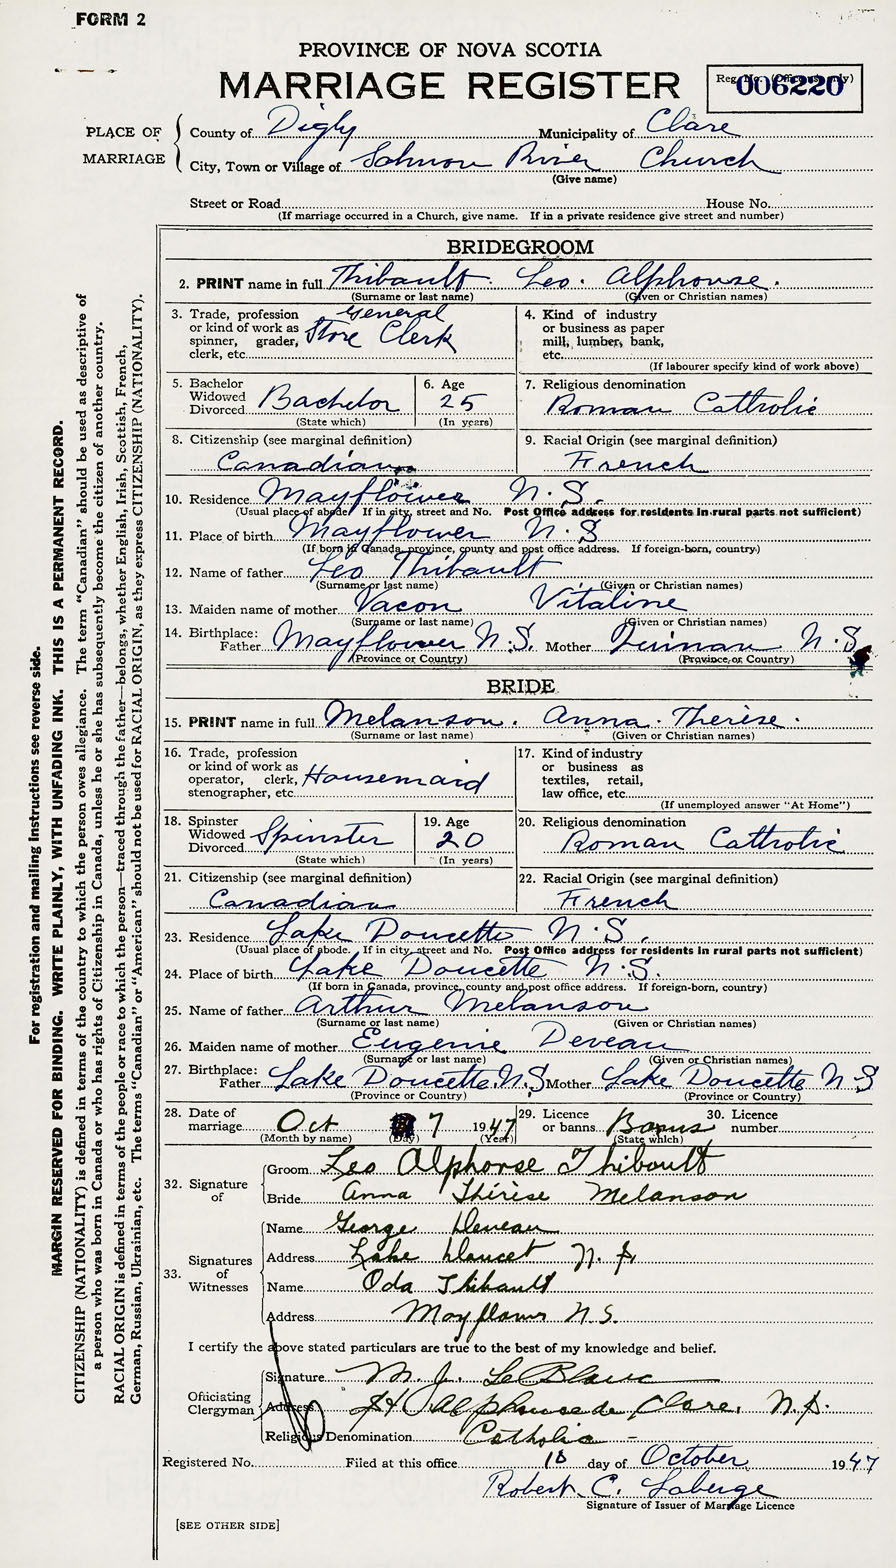 FORM 2
PROVINCE OF NOVA SCOTIA
MARRIAGE REGISTER
Reg. No. (Office use only)
006220
PLACE OF MARRIAGE
County of Digby Municipality of Clare
City, Town or Village of Salmon River Church
(Give name)
Street or Road House No.
(If marriage occurred in a Church, give name. If in a private residence give street and number)
BRIDEGROOM
2. PRINT name in full Thibault Leo. Alphonse.
(Surname or last name) (Given or Christian names)
3. Trade, profession or kind of work as spinner, grader, clerk, etc. General Store Clerk
4. Kind of industry or business as paper mill, lumber, bank, etc.
(If labourer specify kind of work above)
5. Bachelor Widowed Divorced Bachelor
(State which)
6. Age 25
(In years)
7. Religious denomination
Roman Catholic
8. Citizenship (see marginal definition)
Canadian
9. Racial Origin (see marginal definition)
French
10. Residence Mayflower N.S.
(Usual place of abode. If in city, street and No. Post Office address for residents in rural parts not sufficient)
11. Place of birth Mayflower N.S
(If born in Canada, province, county and post office address. If foreign-born, country)
12. Name of father Leo Thibault
(Surname or last name) (Given or Christian names)
13. Maiden name of mother Vacon Vitaline
(Surname or last name) (Given or Christian names)
14. Birthplace: Father Mayflower N.S. Mother N.S
(Province or Country) (Province or Country)
BRIDE
15. PRINT name in full Melanson. Anna. Therise.
(Surname or last name) (Given or Christian names)
16. Trade, profession or kind of work as operator, clerk, stenographer, etc. Housemaid
17. Kind of industry or business as textiles, retail, law office, etc.
(If unemployed answer "At Home")
18. Spinster Widowed Divorced Spinster
(State which)
19. Age 20
(In years)
20. Religious denomination
Roman Catholic
21. Citizenship (see marginal definition)
Canadian
22. Racial Origin (see marginal definition)
French
23. Residence Lake Doucette N.S.
(Usual place of abode. If in city, street and No. Post Office address for residents in rural parts not sufficient)
24. Place of birth Lake Doucette N.S.
(If born in Canada, province, county and post office address. If foreign-born, country)
25. Name of father Arthur Melanson
(Surname or last name) (Given or Christian names)
26. Maiden name of mother Eugenie Deveau
(Surname or last name) (Given or Christian names)
27. Birthplace: Father Lake Doucette N.S Mother Lake Doucette N S
(Province or Country) (Province or Country)
28. Date of marriage Oct 7 1947
(Month by name) (Day) (Year)
29. Licence or banns Banns
(State which)
30. Licence number
32. Signature of
Groom Leo Alphonse Thibault
Bride Anna Thérèse Melanson
33. Signatures of Witnesses
Name George Deveau
Address Lake Doucet N.S
Name Oda Thibault
Address Mayflower N.S.
I certify the above stated particulars are true to the best of my knowledge and belief.
Officiating Clergyman
Signature M. J. LeBlanc
Address St Alphonse de Clare, N.S.
Religious Denomination Catholic -
Registered No. Filed at this office 18 day of October 1947
Robert C. Laberge
Signature of Issuer of Marriage Licence
[SEE OTHER SIDE]
For registration and mailing instructions see reverse side.
MARGIN RESERVED FOR BINDING. WRITE PLAINLY, WITH UNFADING INK. THIS IS A PERMANENT RECORD.
CITIZENSHIP (NATIONALITY) is defined in terms of the country to which the person owes allegiance. The term "Canadian" should be used as descriptive of
a person who was born in Canada or who has rights of Citizenship in Canada, unless he or she has subsequently become the citizen of another country.
RACIAL ORIGIN is defined in terms of the people or race to which the person—traced through the father—belongs, whether English, Irish, Scottish, French,
German, Russian, Ukrainian, etc. The terms "Canadian" or "American" should not be used for RACIAL ORIGIN, as they express CITIZENSHIP (NATIONALITY).